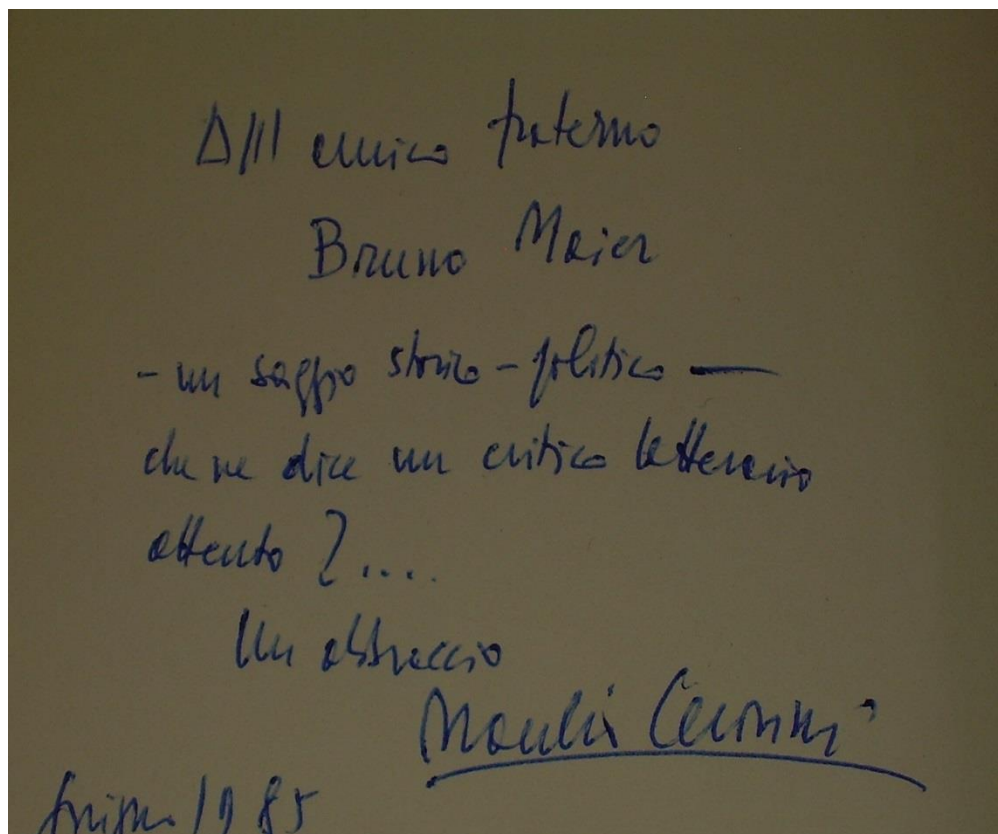 All'amico fraterno
Bruno Maier
- un saggio storico - politico —
che ne dice un critico letterario
attento ?....
Un abbraccio
Manlio Cecovini
giugno 1985